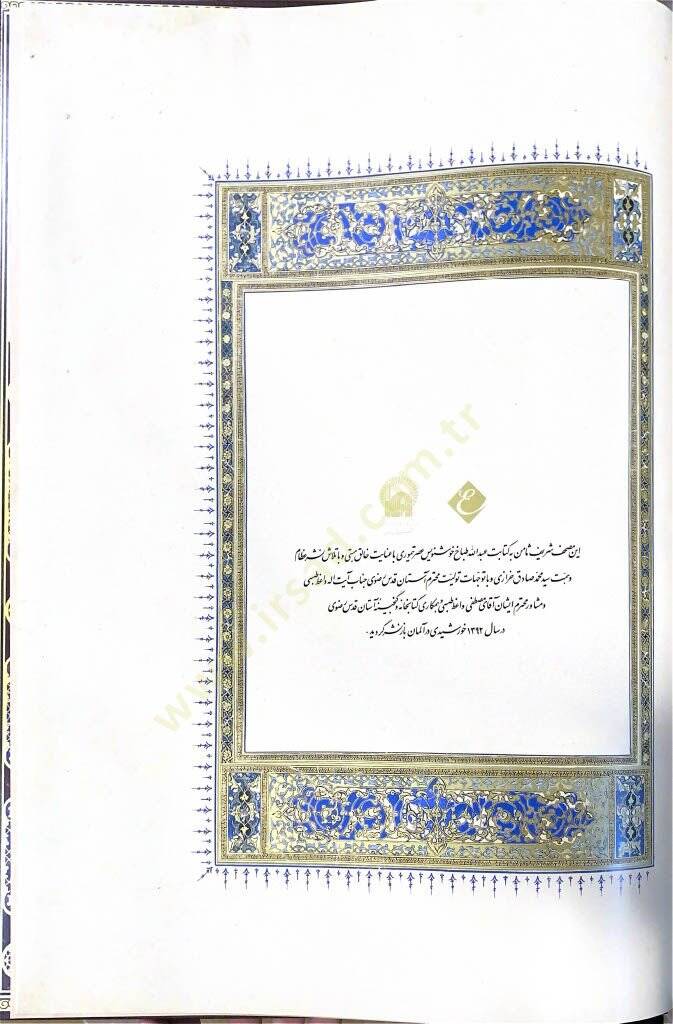 این مصحف شریف ثامن به کتابت عبدالله طباخ خوشنویس عصر تیموری با عنایت خالق هستی و با تلاش نشر عظام
و همت سید محمد صادق خرازی و با توجهات تولیت محترم آستان قدس رضوی جناب آیت اله واعظ طبسی
و مشاور محترم ایشان آقای مصطفی واعظ طبسی و همکاری کتابخانه و گنجینه آستان قدس رضوی
در سال ۱۳۹۲ خورشیدی در آلمان باز نشر گردید.
www.irsad.com.tr